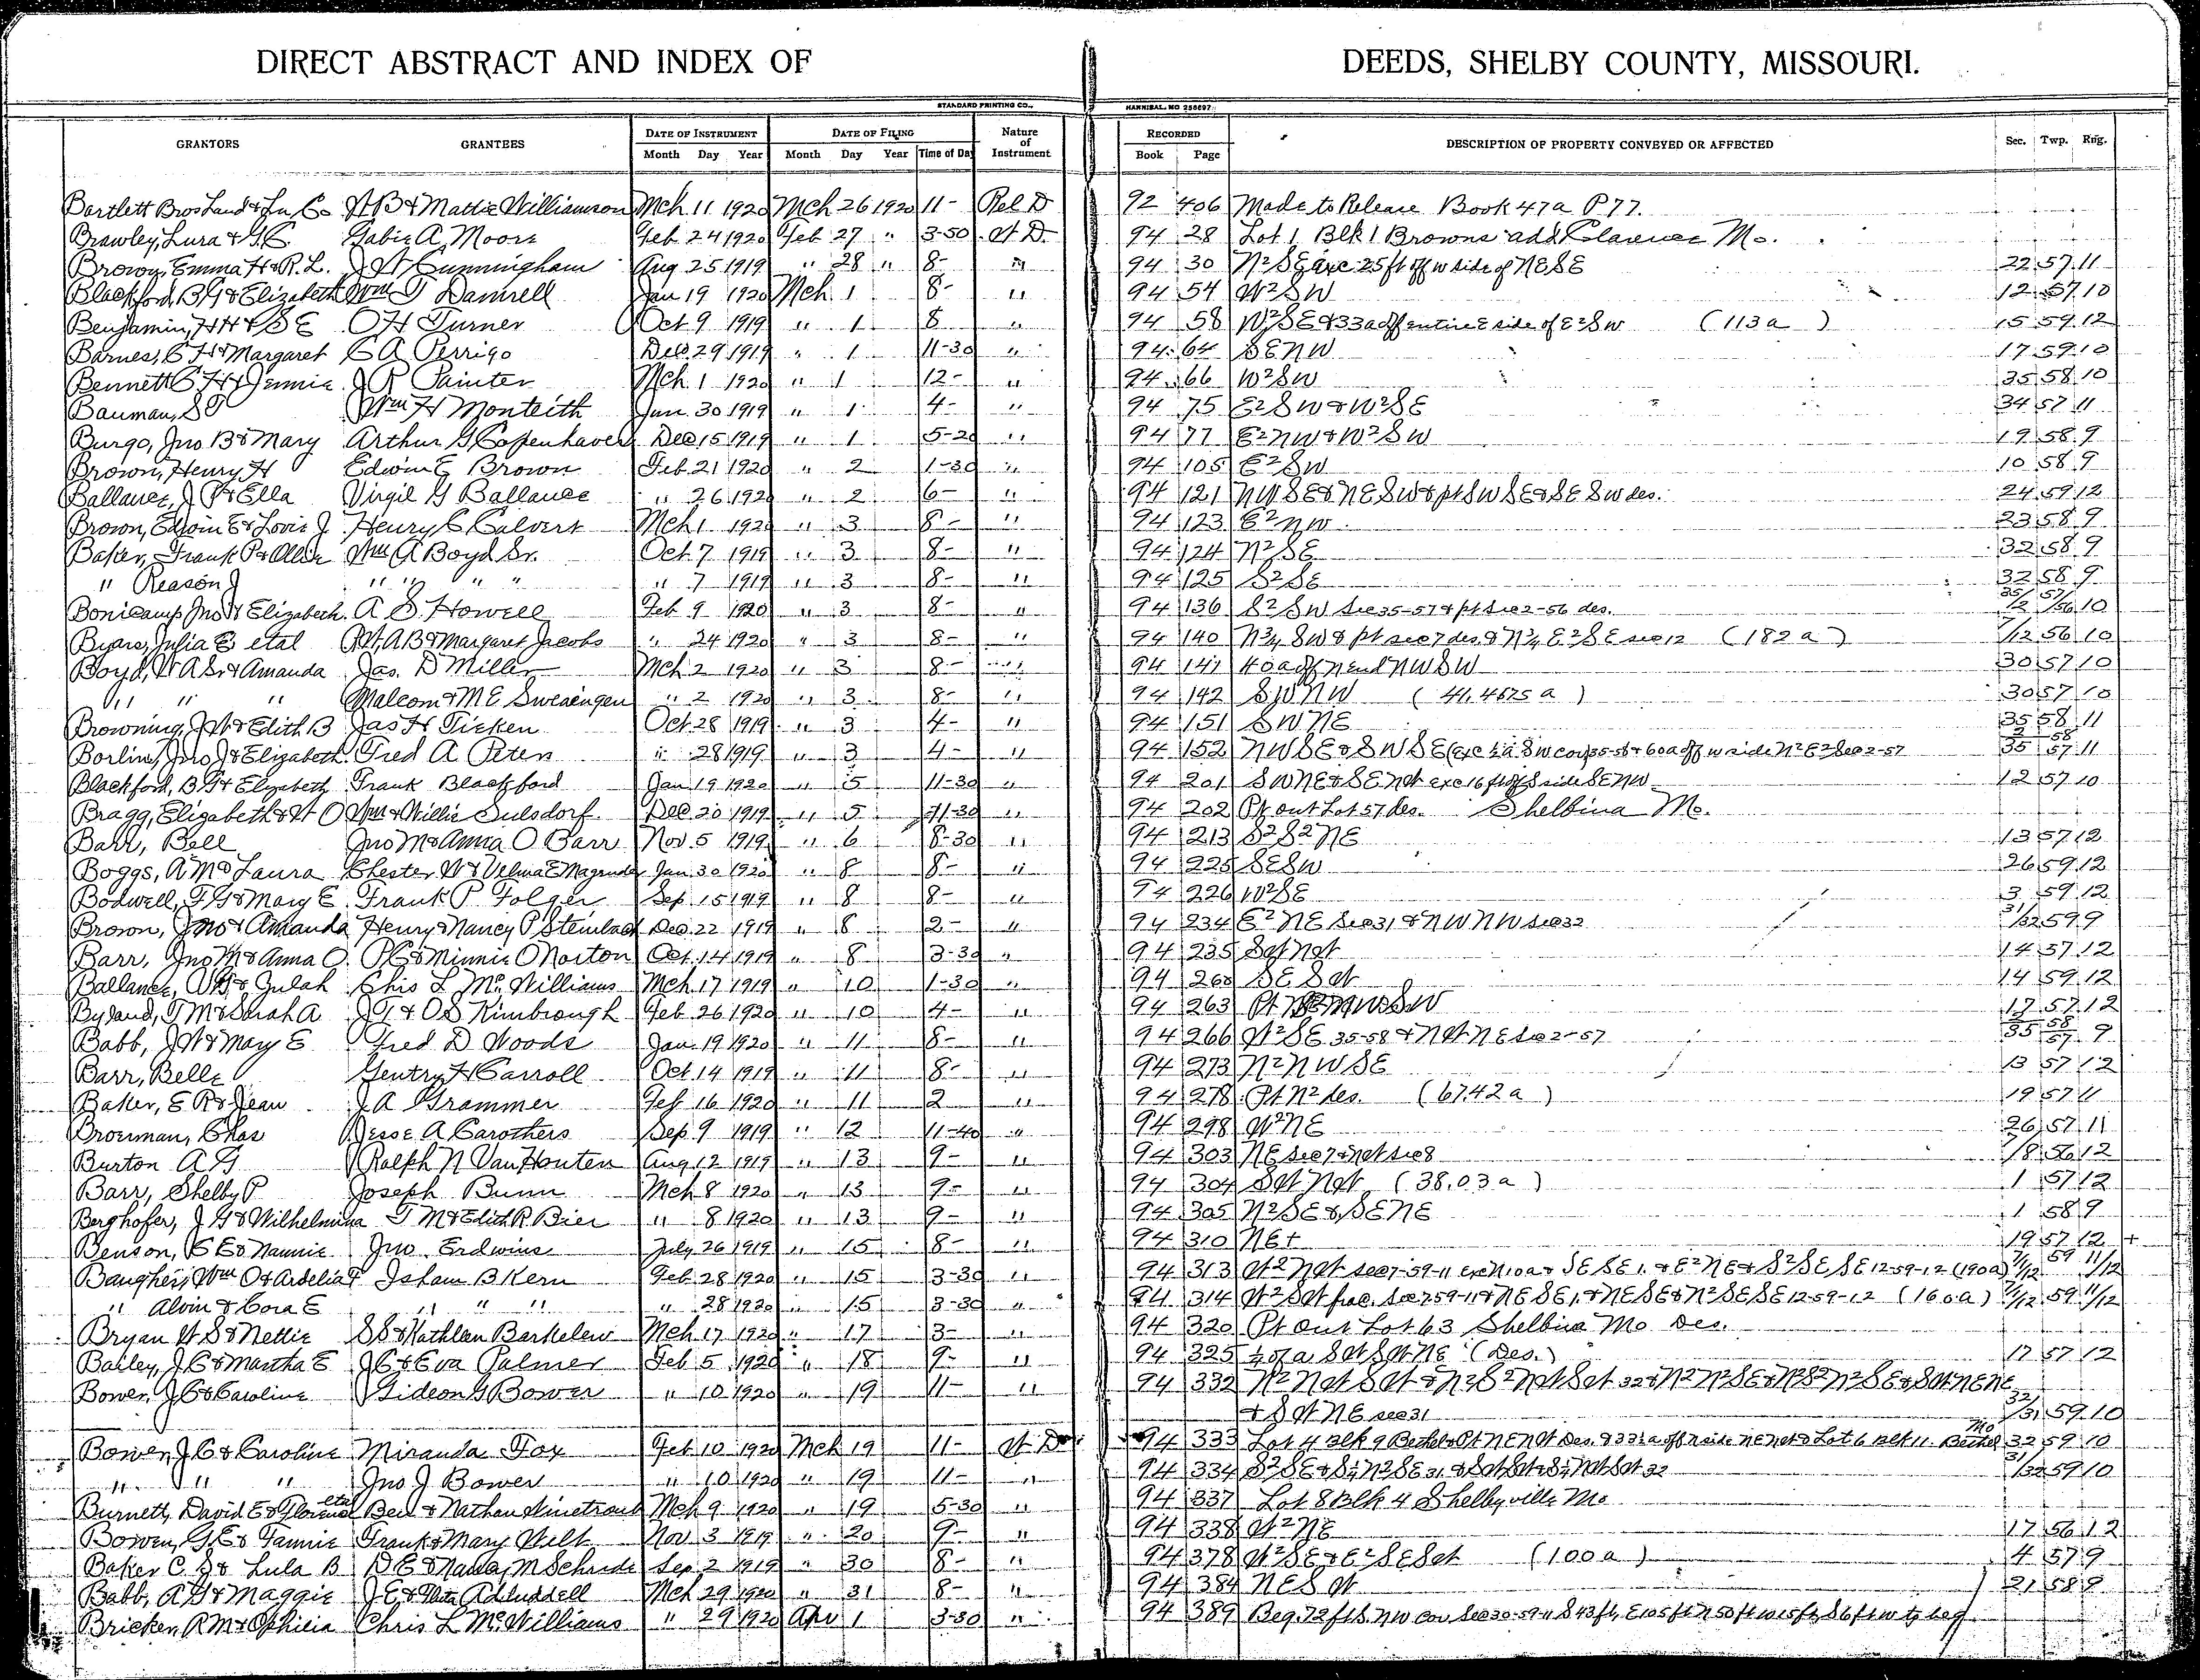 DIRECT ABSTRACT AND INDEX OF DEEDS, SHELBY COUNTY, MISSOURI.
STANDARD PRINTING CO., HANNIBAL, MO 258697
GRANTORS GRANTEES DATE OF INSTRUMENT DATE OF FILING Nature of Instrument RECORDED DESCRIPTION OF PROPERTY CONVEYED OR AFFECTED Sec. Twp. Rng.
Month Day Year Month Day Year Time of Day Book Page
Bartlett Bros Land & Ln Co W B & Mattie Williamson Mch 11 1920 Mch 26 1920 11- Rel D 92 406 Made to Release Book 47a P 77.
Brawley, Lura & Gabie A. Moore Feb 24 1920 Feb 27 " 3-50 W D. 94 28 Lot 1 Blk 1 Browns add Clarence Mo.
Emma H & R. L. J W Cunningham Aug 25 1919 " 28 " 8- " 94 30 N2 SE exc 25 ft off w side of NE SE 22 57 11
Blackford, B F & Elizabeth Wm T Damrell Jan 19 1920 Mch 1 8- " 94 54 W2 SW 12 57 10
Benjamin, H H & S E O H Turner Oct 9 1919 " 1 8 " 94 58 W2 SE & 33a off entire E side of E2 SW (113 a) 15 59 12
Barnes, C H & Margaret C A Perrigo Dec 29 1919 " 1 11-30 " 94 64 SE NW 17 59 10
Bennett C H & Jennie J R Painter Mch 1 1920 " 1 12- " 94 66 W2 SW 35 58 10
Bauman, S T Wm H Monteith Jan 30 1919 " 1 4- " 94 75 E2 SW & W2 SE 34 57 11
Burgo, Jno B & Mary Arthur G Copenhaver Dec 15 1919 " 1 5-20 " 94 77 E2 NW & W2 SW 19 58 9
Brown, Henry H Edwin E Brown Feb 21 1920 " 2 1-30 " 94 105 E2 SW 10 58 9
Ballance, J P & Ella Virgil G Ballance " 26 1920 " 2 6- " 94 121 NW SE & NE SW & pt SW SE & SE SW des. 24 59 12
Brown, Edwin E & Lovie J Henry C Calvert Mch 1 1920 " 3 8- " 94 123 E2 NW 23 58 9
Baker, Frank P & Ollie Wm A Boyd Sr. Oct 7 1919 " 3 8- " 94 124 N2 SE 32 58 9
" Reason J " " " " " 7 1919 " 3 8- " 94 125 S2 SE 32 58 9
Bonicamp Jno & Elizabeth A S. Howell Feb 9 1920 " 3 8- " 94 136 S2 SW Sec 35-57 & pt Sec 2-56 des. 35/2 57/56 10
Byars, Julia E etal A B & Margaret Jacobs " 24 1920 " 3 8- " 94 140 N3/4 SW & pt sec 7 des. & N3/4 E2 SE sec 12 (182 a) 7/12 56 10
Boyd, W A Sr & Amanda Jas. D Miller Mch 2 1920 " 3 8- " 94 141 40a off N end NW SW 30 57 10
" " " Malcom & M E Swearengen " 2 1920 " 3 8- " 94 142 SW NW (41.4675 a) 30 57 10
Browning, J W & Edith B Jas H Ticken Oct 28 1919 " 3 4- " 94 151 SW NE 35 58 11
Jno J & Elizabeth Fred A Peters " 28 1919 " 3 4- " 94 152 NW SE & SW SE (exc 1/2a SW cor) 35-58 & 60a off w side N2 E2 Sec 2-57 2/35 58/57 11
Blackford, B F & Elizabeth Frank Blackford Jan 19 1920 " 5 11-30 " 94 201 SW NE & SE NW exc 16 ft off S side SE NW 12 57 10
Bragg, Elizabeth & W O Wm & Willie Sulsdorf Dec 20 1919 " 5 11-30 " 94 202 Pt out Lot 57 des. Shelbina Mo.
Barr, Bell Jno M & Anna O Barr Nov 5 1919 " 6 8-30 " 94 213 S2 S2 NE 13 57 12
Boggs, A M & Laura Chester W & Velma E Magruder Jan 30 1920 " 8 8- " 94 225 SE SW 26 59 12
Bodwell, F G & Mary E Frank P. Folger Sep 15 1919 " 8 8- " 94 226 W2 SE 3 59 12
Brown, Jno & Amanda Henry & Nancy P Steinbach Dec 22 1919 " 8 2- " 94 234 E2 NE Sec 31 & NW NW sec 32 31/32 59 9
Barr, Jno M & Anna O. P C & Minnie O Norton Oct 14 1919 " 8 3-30 " 94 235 SW NW 14 57 12
Ballance, & Zulah Chis L McWilliams Mch 17 1919 " 10 1-30 " 94 260 SE SW 14 59 12
Byland, T M & Sarah A J T & O S Kimbrough Feb 26 1920 " 10 4- " 94 263 Pt 17 57 12
Babb, J W & May E Fred D Woods Jan 19 1920 " 11 8- " 94 266 W2 SE 35-58 & NW NE Sec 2-57 35 58/57 9
Barr, Belle Gentry H Carroll Oct 14 1919 " 11 8- " 94 273 N2 NW SE 13 57 12
Baker, E R & Jean J A Grammer Feb 16 1920 " 11 2 " 94 278 Pt N2 des. (67.42 a) 19 57 11
Chas Jesse A Carothers Sep 9 1919 " 12 11-40 " 94 298 W2 NE 26 57 11
Burton A G Ralph N VanHouten Aug 12 1919 " 13 9- " 94 303 NE sec 7 & NW sec 8 7/8 56 12
Barr, Shelby P Joseph Bunn Mch 8 1920 " 13 9- " 94 304 SW NW (38.03 a) 1 57 12
Berghofer, J G & Wilhelmina T M & Edith R. Bier " 8 1920 " 13 9- " 94 305 N2 SE & SE NE 1 58 9
Benson, C E & Nannie Jno. Erdwins July 26 1919 " 15 8- " 94 310 NE+ 19 57 12 +
Baugher, Wm O & Ardelia F Isham B Kern Feb 28 1920 " 15 3-30 " 94 313 W2 NW sec 7-59-11 exc N 10a & SE SE 1, & E2 NE & S2 SE SE 12-59-12 (190a) 7/12 59 11/12
" Alvin & Cora E " " " " 28 1920 " 15 3-30 " 94 314 W2 SW frac. Sec 7 59-11 & NE SE 1, & NE SE & N2 SE SE 12-59-12 (160a) 7/12 59 11/12
Bryan W S & Nettie S S & Kathleen Barkelew Mch 17 1920 " 17 3- " 94 320 Pt Out Lot 63 Shelbina Mo Des.
Bailey, J C & Martha E J C & Eva Palmer Feb 5 1920 " 18 9- " 94 325 1/2 of a SW SW NE (Des.) 17 57 12
Bower, J C & Caroline Gideon G Bower " 10 1920 " 19 11- " 94 332 N2 NW SW & N2 S2 NW SW 32 & N2 N2 SE & N2 S2 N2 SE & SW NE NE
& SW NE sec 31 32/31 59 10
Bower, J C & Caroline Miranda Fox Feb 10 1920 Mch 19 11- W D 94 333 Lot 4 Blk 9 Bethel & Pt NE NW Des. & 33 1/3a off N side NE NW & Lot 6 Blk 11 Bethel Mo 32 59 10
" " " Jno J Bower " 10 1920 " 19 11- " 94 334 S2 SE & S1/2 N2 SE 31, & SW SW & S1/2 NW SW 32 31/32 59 10
Burnett, David E & Florence etal Ben & Nathan Mch 9 1920 " 19 5-30 " 94 337 Lot 8 Blk 4 Shelbyville Mo
Bowen, G E & Fannie Frank & Mary Wilt Nov 3 1919 " 20 9- " 94 338 W2 NE 17 56 12
Baker C S & Lula B D E & M Schrade Sep 2 1919 " 30 8- " 94 378 W2 SE & E2 SE SW (100 a) 4 57 9
Babb, A G & Maggie J E & Adduddell Mch 29 1920 " 31 8- " 94 384 NE SW 21 58 9
Bricker, R M & Ophelia Chris L McWilliams " 29 1920 Apr 1 3-30 " 94 389 Beg. 72 ft S. NW cor Sec 30-59-11 S 43 ft, E 105 ft N 50 ft W 15 ft S 6 ft w to beg